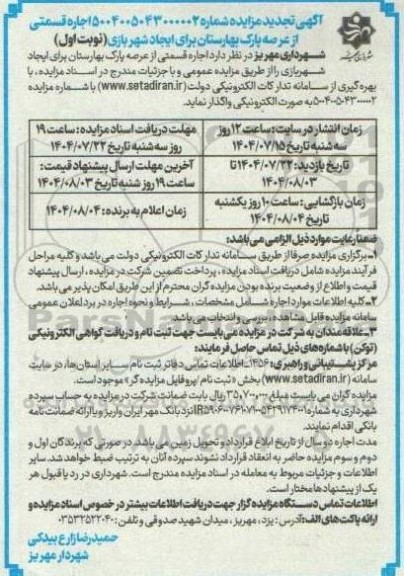 آگهی تجدید مزایده شماره ۵۰۰۴۰۰۵۰۴۳۰۰۰۰۰۲ اجاره قسمتی
از عرصه پارک بهارستان برای ایجاد شهر بازی (نوبت اول)
شهرداری مهریز در نظر دارد اجاره قسمتی از عرصه پارک بهارستان برای ایجاد
شهربازی را از طریق مزایده عمومی و با جزئیات مندرج در اسناد مزایده، با
بهره‌گیری از سامانه تدارکات الکترونیکی دولت (www.setadiran.ir) با شماره مزایده
۵۰۰۴۰۰۵۰۴۳۰۰۰۰۰۲ به صورت الکترونیکی واگذار نماید.
زمان انتشار در سایت: ساعت ۱۲ روز سه شنبه تاریخ ۱۴۰۴/۰۷/۱۵
مهلت دریافت اسناد مزایده: ساعت ۱۹ روز سه شنبه تاریخ ۱۴۰۴/۰۷/۲۲
تاریخ بازدید: ۱۴۰۴/۰۷/۲۲ تا ۱۴۰۴/۰۸/۰۳
آخرین مهلت ارسال پیشنهاد قیمت: ساعت ۱۹ روز شنبه تاریخ ۱۴۰۴/۰۸/۰۳
زمان بازگشایی: ساعت ۱۰ روز یکشنبه تاریخ ۱۴۰۴/۰۸/۰۴
زمان اعلام به برنده: ۱۴۰۴/۰۸/۰۴
ضمنا رعایت موارد ذیل الزامی می‌باشد:
۱- برگزاری مزایده صرفا از طریق سامانه تدارکات الکترونیکی دولت می‌باشد و کلیه مراحل
فرآیند مزایده شامل دریافت اسناد مزایده، پرداخت تضمین شرکت در مزایده، ارسال پیشنهاد
قیمت و اطلاع از وضعیت برنده بودن مزایده گران محترم از این طریق امکان پذیر می باشد.
۲- کلیه اطلاعات موارد اجاره شامل مشخصات، شرایط و نحوه اجاره در برد اعلان عمومی
سامانه مزایده قابل مشاهده، بررسی و انتخاب می باشد.
۳- علاقه مندان به شرکت در مزایده می بایست جهت ثبت نام و دریافت گواهی الکترونیکی
(توکن) با شماره‌های ذیل تماس حاصل فرمایند:
مرکز پشتیبانی و راهبری: ۱۴۵۶، اطلاعات تماس دفاتر ثبت نام سایر استان‌ها، در سایت
سامانه (www.setadiran.ir) بخش «ثبت نام/پروفایل مزایده گر» موجود است.
مزایده گران می بایست مبلغ ۳۵,۷۰۰,۰۰۰ ریال بابت ضمانت شرکت در مزایده به حساب سپرده
شهرداری به شماره نزد بانک مهر ایران واریز و یا ارائه ضمانت نامه
بانکی اقدام نمایند.
مدت اجاره دو سال از تاریخ ابلاغ قرارداد و تحویل زمین می باشد. در صورتی که برندگان اول و
دوم و سوم مزایده حاضر به انعقاد قرارداد نشوند سپرده آنان به ترتیب ضبط خواهد شد. سایر
اطلاعات و جزئیات مربوط به معامله در اسناد مزایده مندرج است. شهرداری در رد یا قبول هر
یک از پیشنهادها مختار است.
اطلاعات تماس دستگاه مزایده گزار جهت دریافت اطلاعات بیشتر در خصوص اسناد مزایده و
ارائه پاکت های الف: آدرس: یزد، مهریز، میدان شهید صدوقی و تلفن: ۰۳۵۳۲۵۲۲۰۴۰
حمیدرضا زارع بیدکی
شهردار مهریز